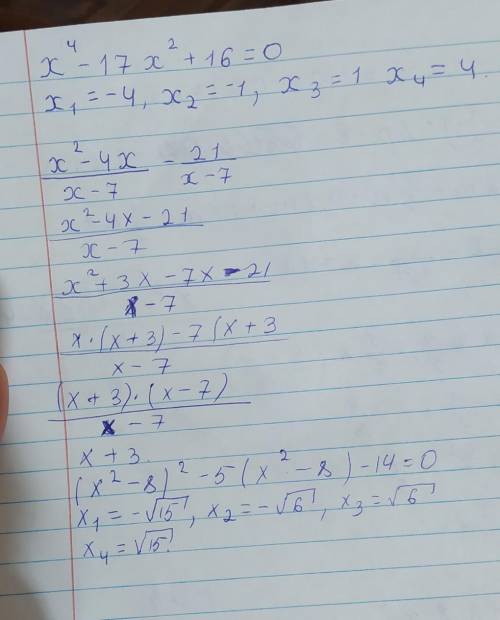 x⁴ - 17 x² + 16 = 0
x₁ = -4, x₂ = -1, x₃ = 1 x₄ = 4.
(x² - 4x)/(x - 7) - 21/(x - 7)
(x² - 4x - 21)/(x - 7)
(x² + 3x - 7x - 21)/(x - 7)
(x · (x + 3) - 7 (x + 3)/(x - 7)
((x + 3) · (x - 7))/(x - 7)
x + 3.
(x² - 8)² - 5 (x² - 8) - 14 = 0
x₁ = -√15, x₂ = -√6, x₃ = √6
x₄ = √15.